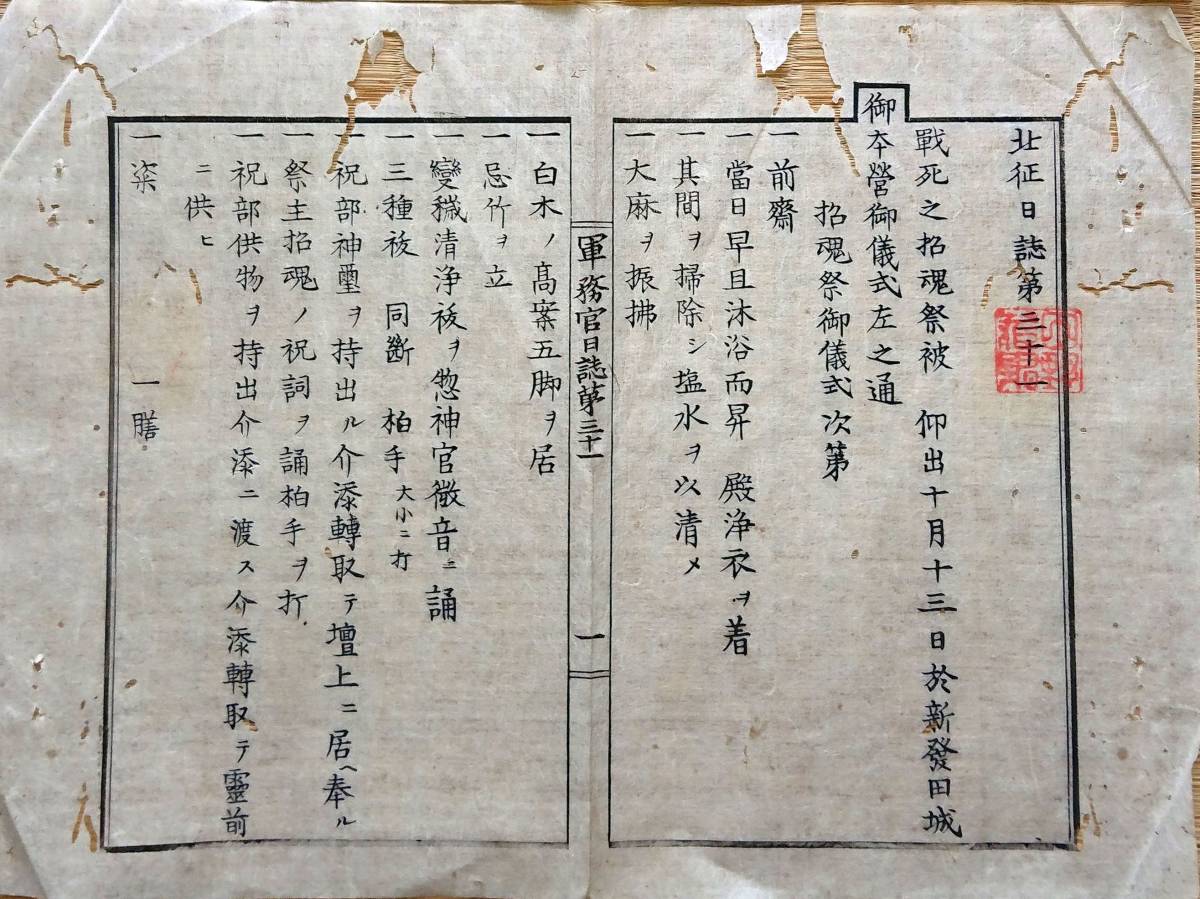 北征日誌第三十一
戰死之招魂祭被　仰出十月十三日於新發田城
御本營御儀式左之通
招魂祭御儀式次第
一前齋
一當日早旦沐浴而昇　殿浄衣ヲ着
一其間ヲ掃除シ塩水ヲ以清メ
一大麻ヲ振拂
軍務官日誌第三十一　一
一白木ノ髙案五脚ヲ居
一忌竹ヲ立
一變穢清浄祓ヲ惣神官微音ニ誦
一三種祓　同斷　柏手大小ニ打
一祝部神璽ヲ持出ル介添轉取テ壇上ニ居ヘ奉ル
一祭主招魂ノ祝詞ヲ誦柏手ヲ打
一祝部供物ヲ持出介添ニ渡ス介添轉取テ靈前
ニ供ヒ
一粢　一膳